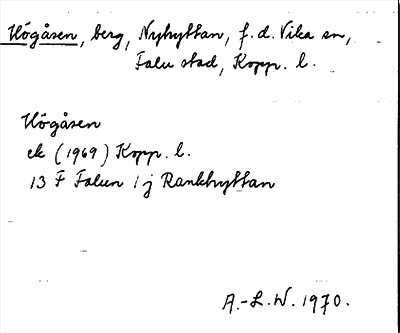 Högåsen, berg, Nyhyttan, f.d. Vika sn,
Falu stad, Kopp. l.
Högåsen
ek (1969) Kopp. l.
13 F Falun 1 j Rankhyttan
A.-L.W. 1970.